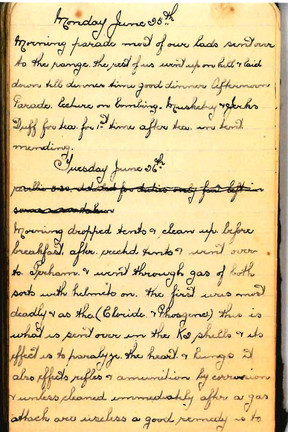 Monday June 25th
Morning parade most of our lads sent over
to the range. the rest of us went up on hill & laid
down till dinner time good dinner Afternoon
Parade. lecture on bombing. Musketry & Jerks
Duff for tea for 1st time after tea. in tent
mending.
Tuesday June 26th
parade 8.30. detailed for duties only four left in
Morning dropped tents & clean up before
breakfast. after. erectd tents & went over
to Eprham. & went through gas of both
sorts with helmets on. the first uses most
deadly & as the (Cloride & Phosgene) this is
what is sent over in the K2 shells & its
effect is to paralyze. the heart & lungs It
also effects rifles & amunition by corrosion
& unless cleaned immediately after a gas
attack are useless a good remedy is to